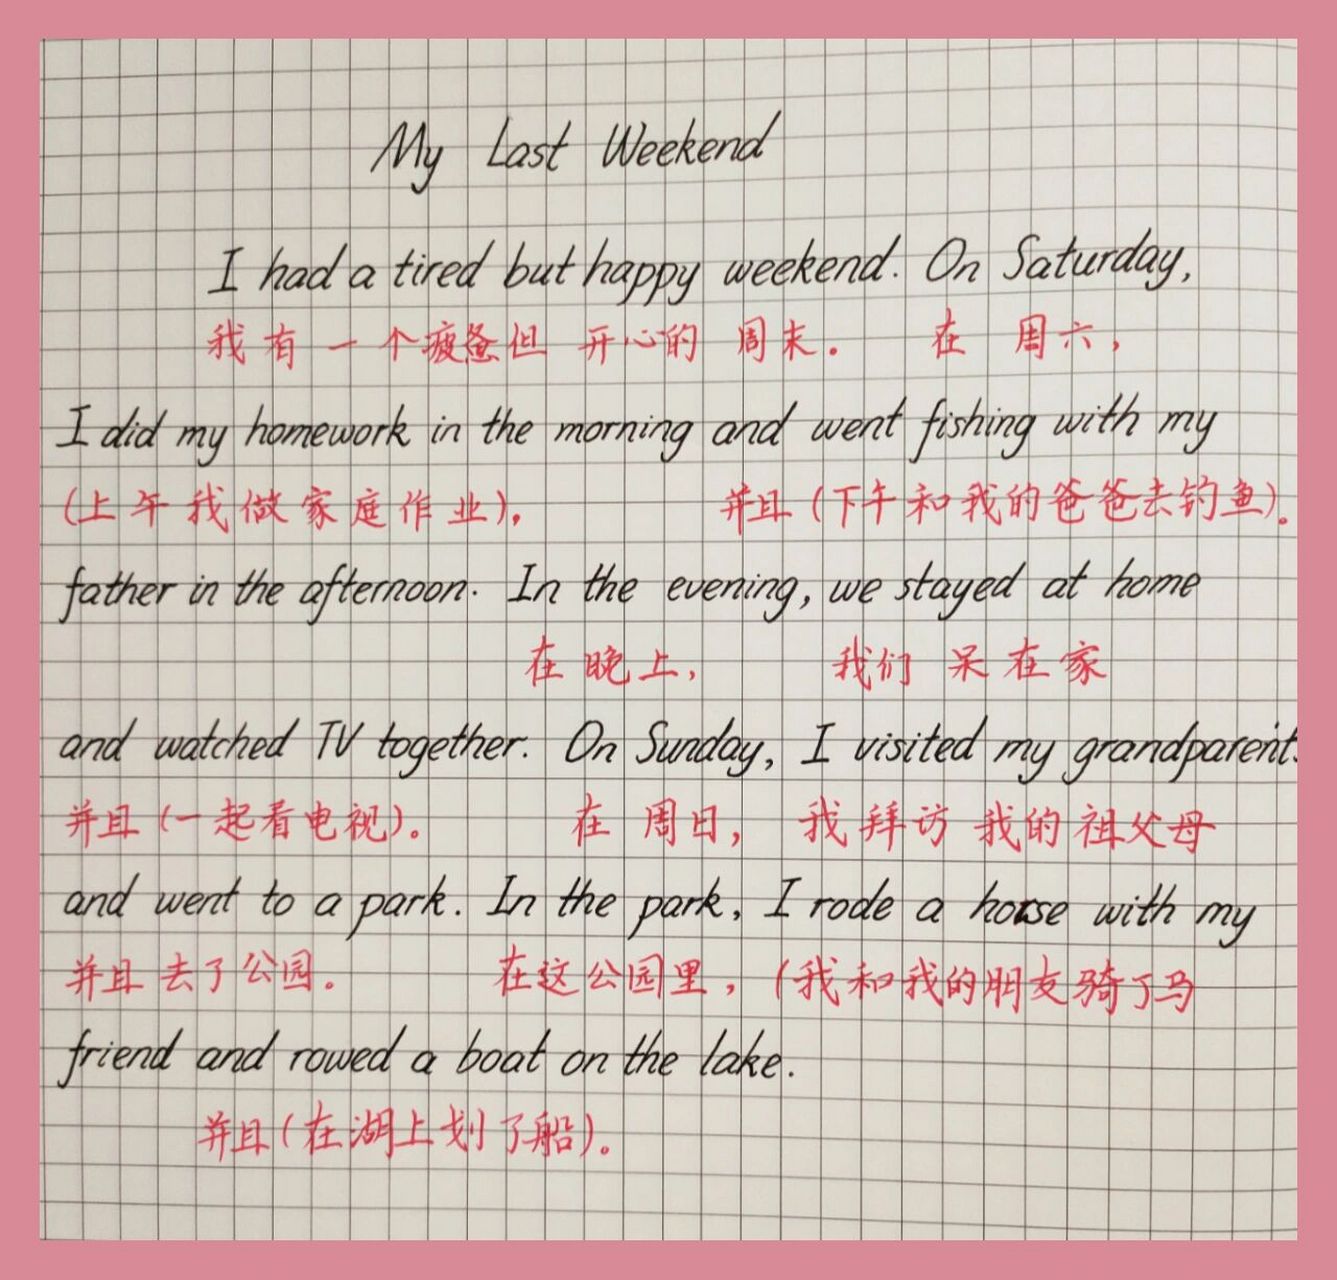 My Last Weekend
I had a tired but happy weekend. On Saturday,
我有一个疲惫但 开心的 周末。 在 周六,
I did my homework in the morning and went fishing with my
(上午我做家庭作业), 并且(下午和我的爸爸去钓鱼)。
father in the afternoon. In the evening, we stayed at home
在晚上, 我们 呆在家
and watched TV together. On Sunday, I visited my grandparents
并且(一起看电视)。 在 周日, 我拜访 我的祖父母
and went to a park. In the park, I rode a horse with my
并且去了公园。 在这公园里,(我和我的朋友骑了马
friend and rowed a boat on the lake.
并且(在湖上划了船)。